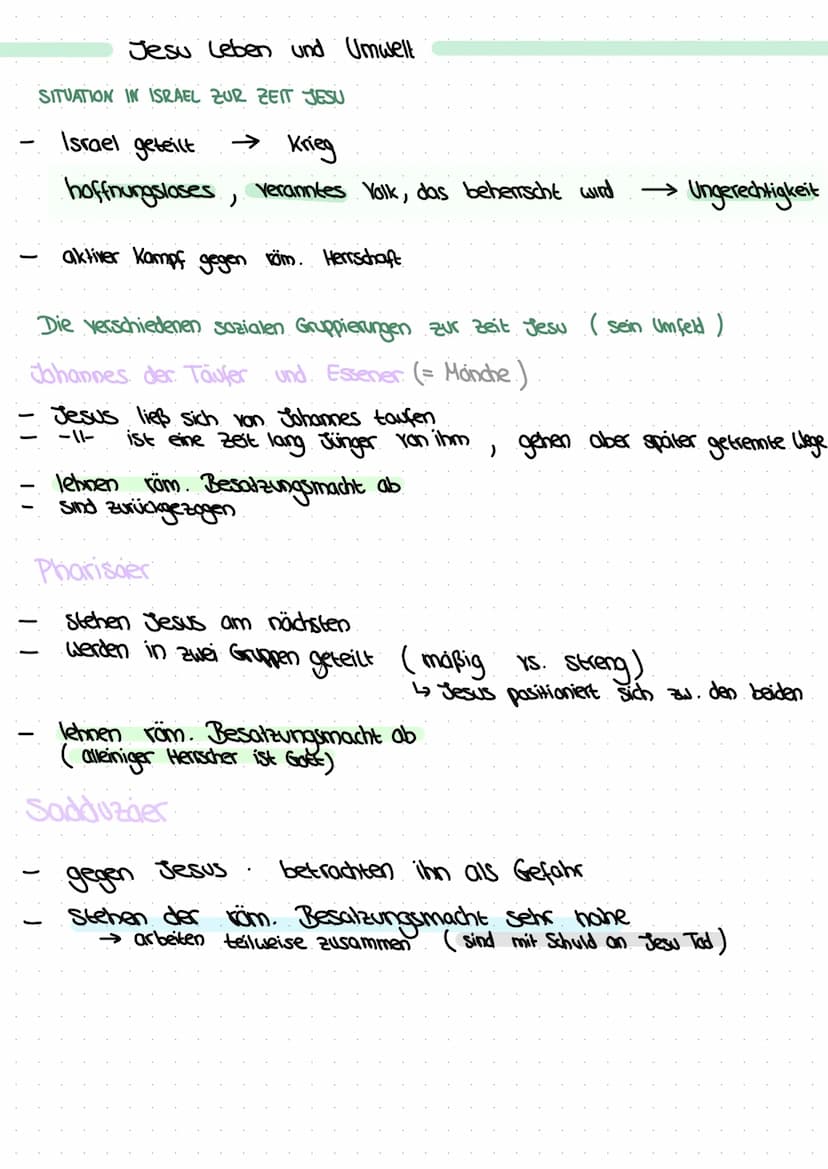 Jesu Leben und Umwelt
SITUATION IN ISRAEL ZUR ZEIT JESU
- Israel geteilt → Krieg
hoffnungsloses, verarmtes Volk, das beherrscht wird → Ungerechtigkeit
- aktiver Kampf gegen röm. Herrschaft
Die verschiedenen sozialen Gruppierungen zur Zeit Jesu (sein Umfeld)
Johannes der Täufer und Essener (= Mönche)
- Jesus ließ sich von Johannes taufen
- -11- ist eine Zeit lang Jünger von ihm, gehen aber später getrennte Wege
- lehnen röm. Besatzungsmacht ab
- sind zurückgezogen
Pharisäer
- stehen Jesus am nächsten
- werden in zwei Gruppen geteilt (mäßig vs. streng)
↳ Jesus positioniert sich zw. den beiden
- lehnen röm. Besatzungsmacht ab
(alleiniger Herrscher ist Gott)
Sadduzäer
- gegen Jesus · betrachten ihn als Gefahr
- stehen der röm. Besatzungsmacht sehr nahe
→ arbeiten teilweise zusammen (sind mit Schuld an Jesu Tod)